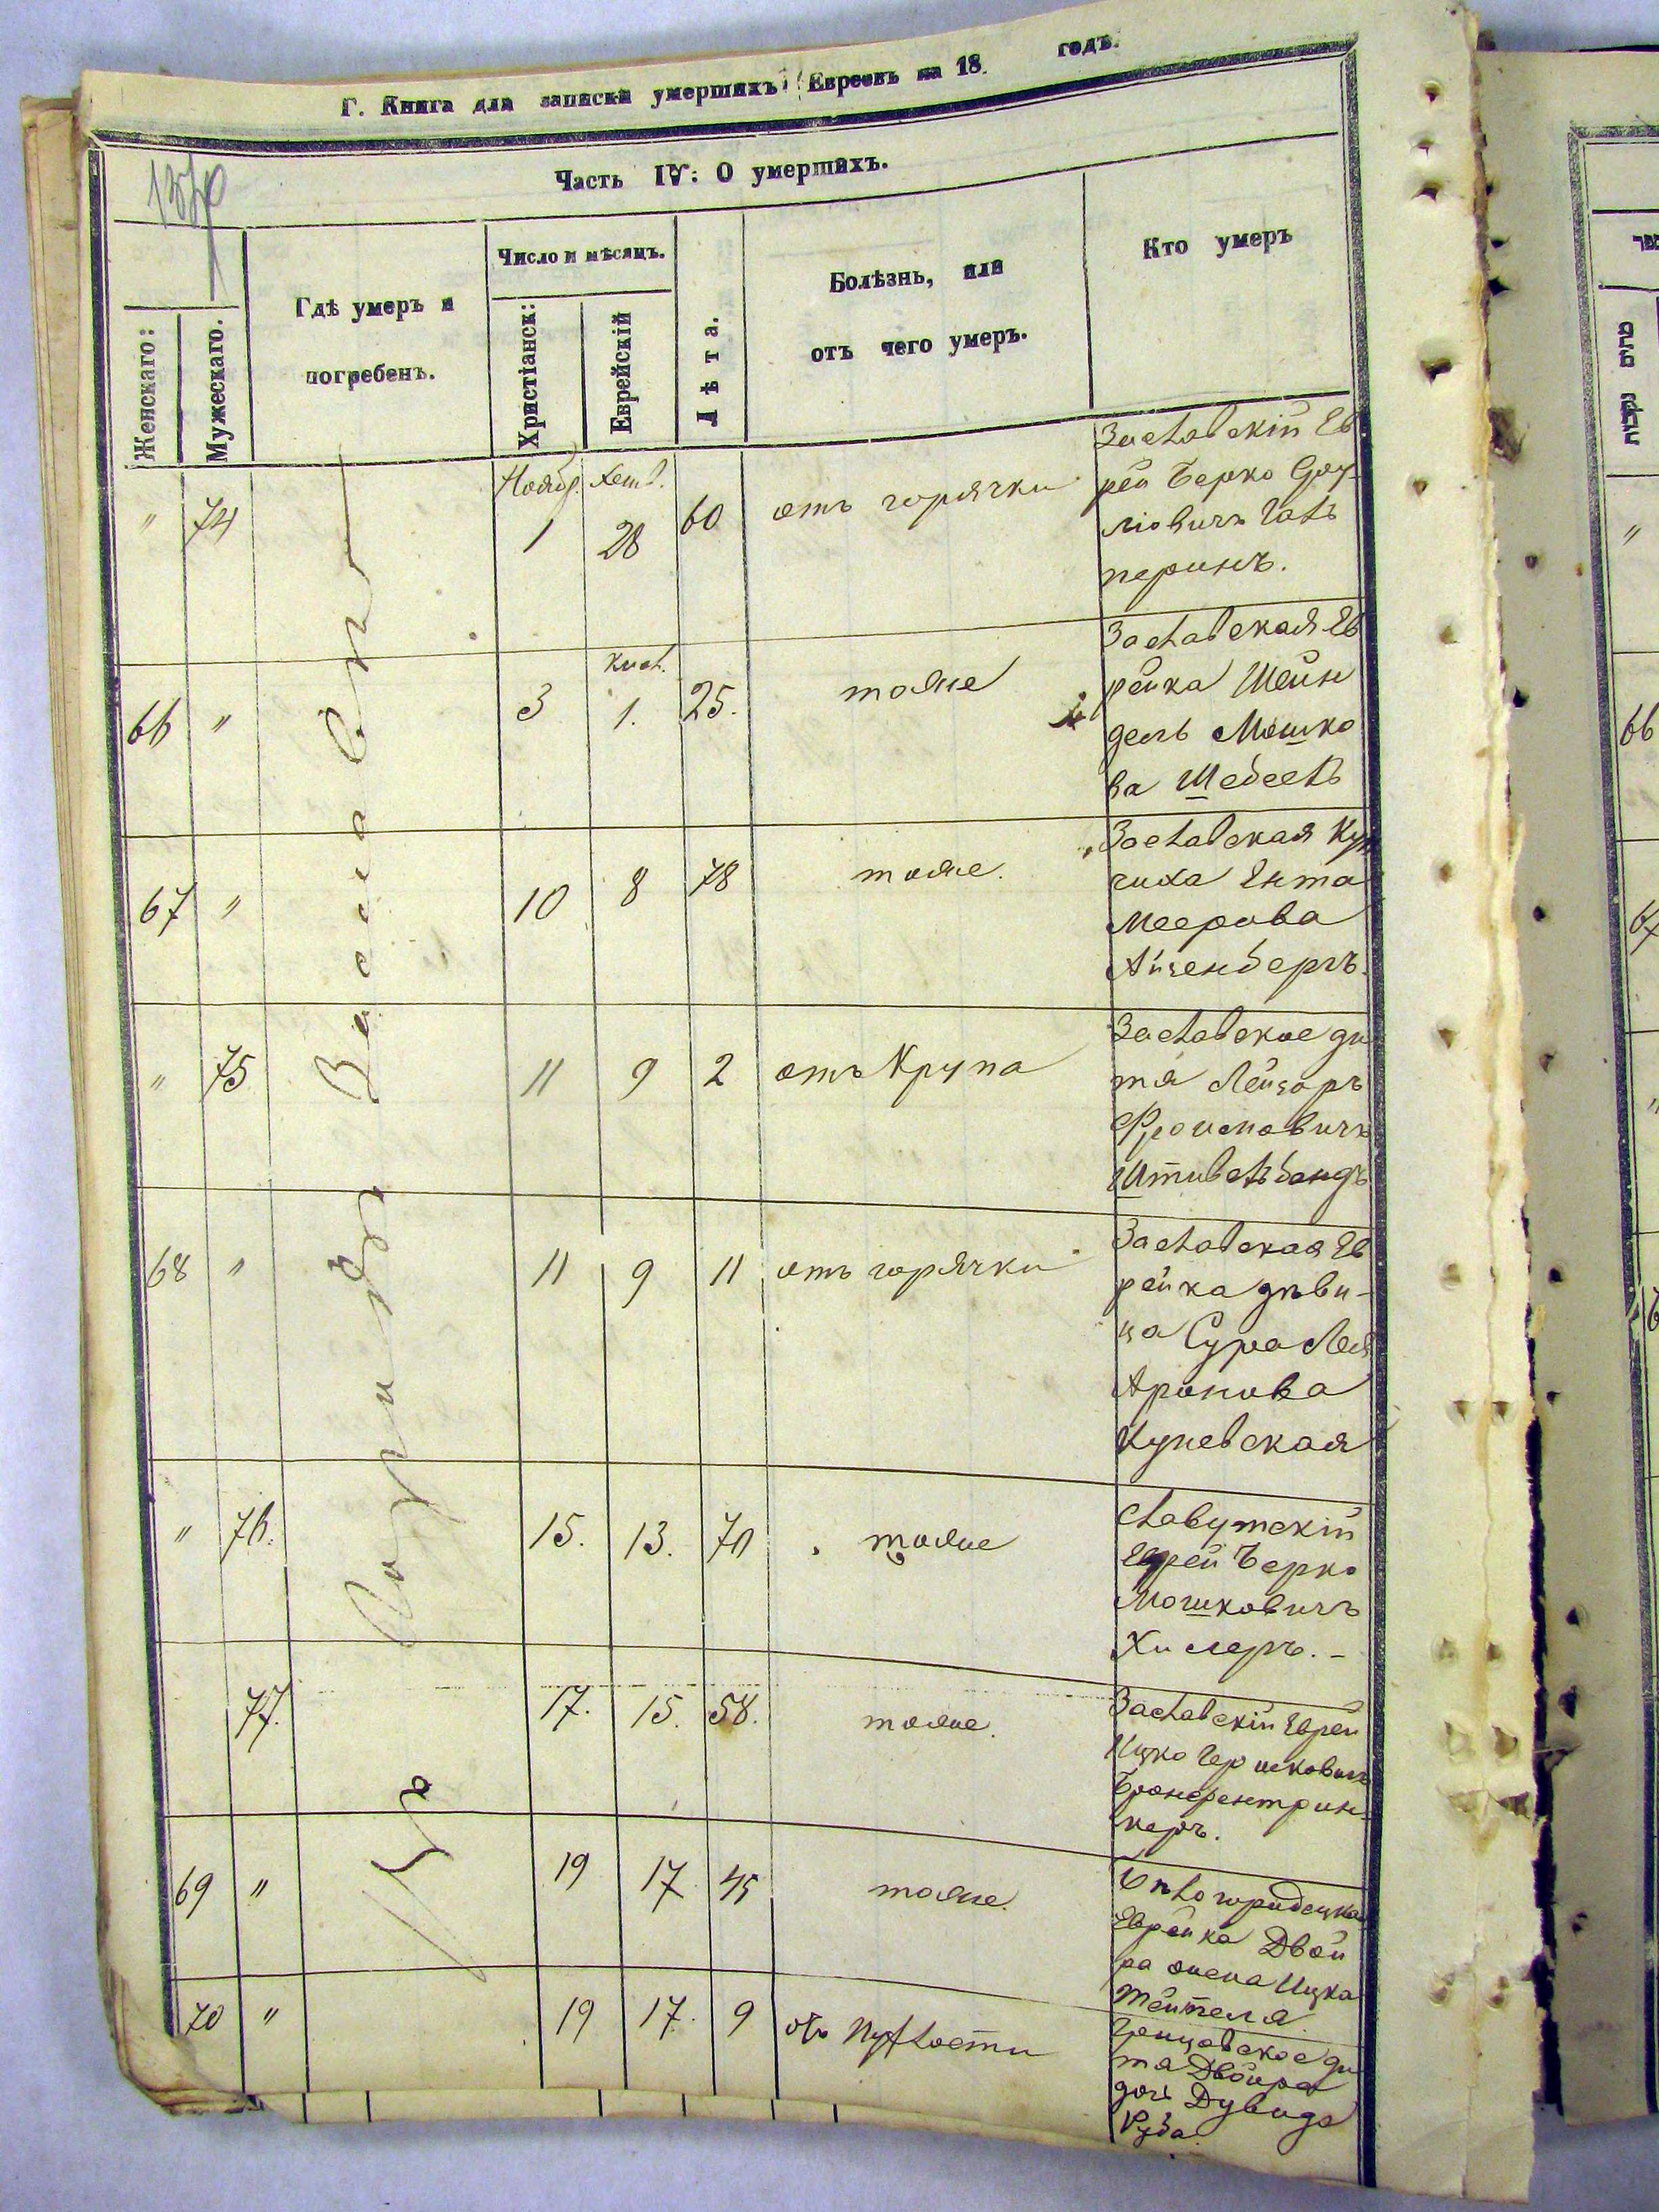 Г. Книга для записки умершихъ Евреевъ на 18 годъ.
Часть IV: О умершихъ.
Женскаго:
Мужескаго.
Гдѣ умеръ и
погребенъ.
Число и мѣсяцъ.
Христіанск:
Еврейскій
Лѣта.
Болѣзнь, или
отъ чего умеръ.
Кто умеръ
Заславѣ
" 74 Ноябр. 1 Хешв. 28 60 отъ горячки
Заславскій Ев
рей Берко Сру
ліовичъ Галь
перинъ.
66 " 3 Кисл. 1. 25. тоже
Заславская Ев
рейка Шейн
дель Мошко
ва
67 " 10 8 78 тоже.
Заславская Куп
чиха Ента
Меерова
Айзенбергъ.
" 75 11 9 2 отъ Крупа
Заславское ди
тя Лейзоръ
Фроимовичъ
68 " 11 9 11 отъ горячки
Заславская Ев
рейка дѣви-
ца Сура Лея
Аронова
Куневская
" 76. 15. 13. 70 тоже
Славутскій
Еврей Берко
Мошковичъ
77. 17. 15. 58. тоже.
Заславскій Еврей
Ицко Гершковичъ
керъ.
69 " 19 17 45 тоже.
Бѣлогородецка
Еврейка Двой
ра жена Ицка
Тейтеля
70 " 19 17. 9 отъ
Грицовское ди
тя Двойра
дочь Дувида